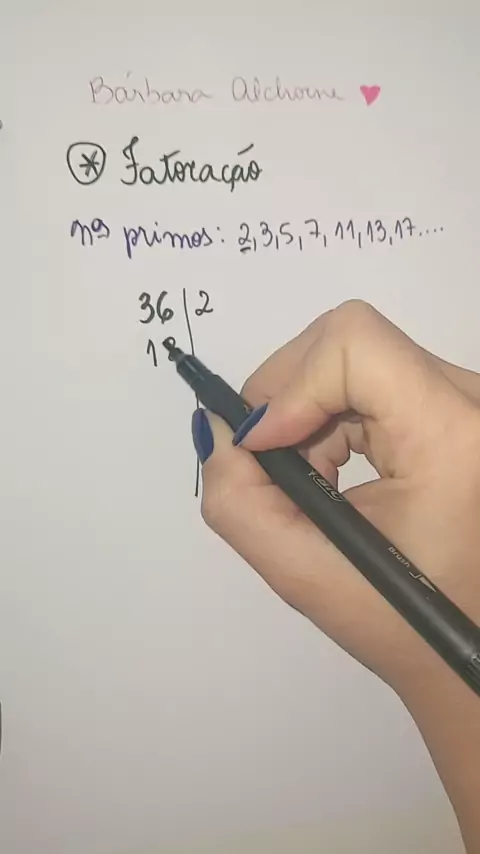 Bárbara Alchorne ♥
* Fatoração
nºs primos: 2, 3, 5, 7, 11, 13, 17....
36 | 2
18
Brush